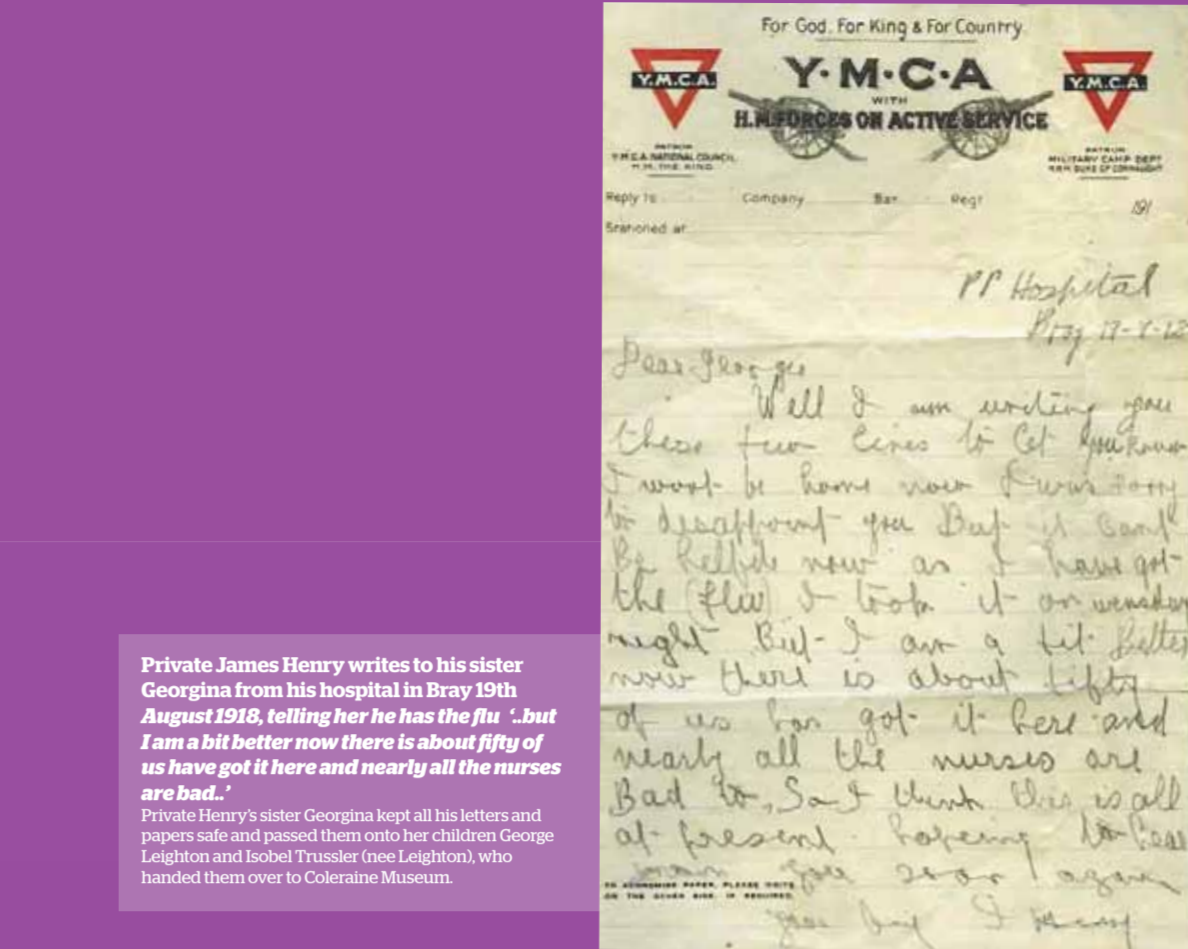 Private James Henry writes to his sister
Georgina from his hospital in Bray 19th
August 1918, telling her he has the flu ‘..but
I am a bit better now there is about fifty of
us have got it here and nearly all the nurses
are bad..’
Private Henry’s sister Georgina kept all his letters and
papers safe and passed them onto her children George
Leighton and Isobel Trussler (nee Leighton), who
handed them over to Coleraine Museum.
For God. For King & For Country.
Y.M.C.A.
Y·M·C·A
Y.M.C.A.
WITH
H.M FORCES ON ACTIVE SERVICE
PATRON
Y.M.C.A. NATIONAL COUNCIL
H.M. THE KING.
PATRON
MILITARY CAMP DEPT
H.R.H. DUKE OF CONNAUGHT
Reply to Company Bat Regt 191
Stationed at
PP Hospital
Bray
Dear Georgie
Well I am writing you
these few lines to let you know
I wont be home now I was sorry
to desappoint you But it cant
Be now as I have got
the (flu) I took it on wensday
night But I am a bit Better
now there is about fifty
of us has got it here and
nearly all the nurses are
Bad to, So I think this is all
at present hopeing to hear
from you soon again
TO ECONOMISE PAPER, PLEASE WRITE
ON THE OTHER SIDE, IF REQUIRED.
J Henry